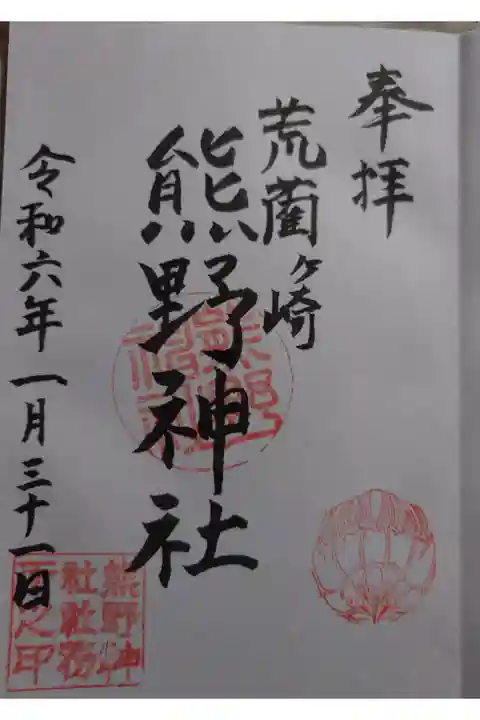 奉拝
荒藺ヶ崎
熊野神社
令和六年一月三十一日
熊野
神社
熊野神
社社務
所之印